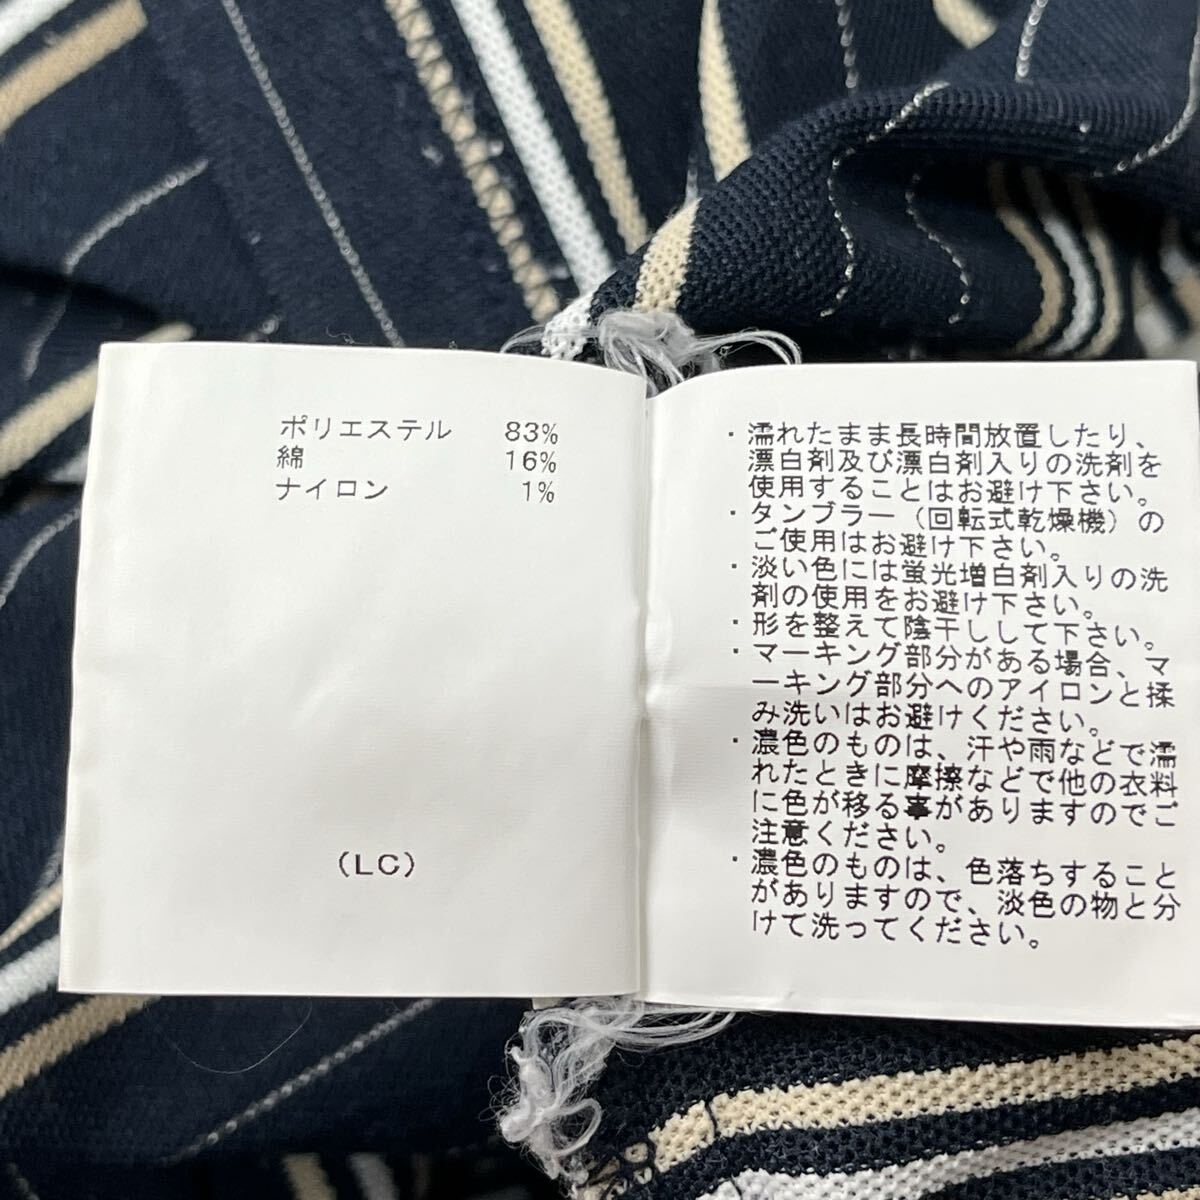 ポリエステル 83%
綿 16%
ナイロン 1%
(LC)
・濡れたまま長時間放置したり、
漂白剤及び漂白剤入りの洗剤を
使用することはお避け下さい。
・タンブラー（回転式乾燥機）の
ご使用はお避け下さい。
・淡い色には蛍光増白剤入りの洗
剤の使用をお避け下さい。
・形を整えて陰干しして下さい。
・マーキング部分がある場合、マ
ーキング部分へのアイロンと揉
み洗いはお避けください。
・濃色のものは、汗や雨などで濡
れたときに摩擦などで他の衣料
に色が移る事がありますのでご
注意ください。
・濃色のものは、色落ちすること
がありますので、淡色の物と分
けて洗ってください。